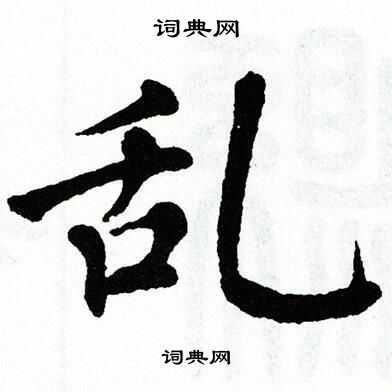 词典网
乱
词典网